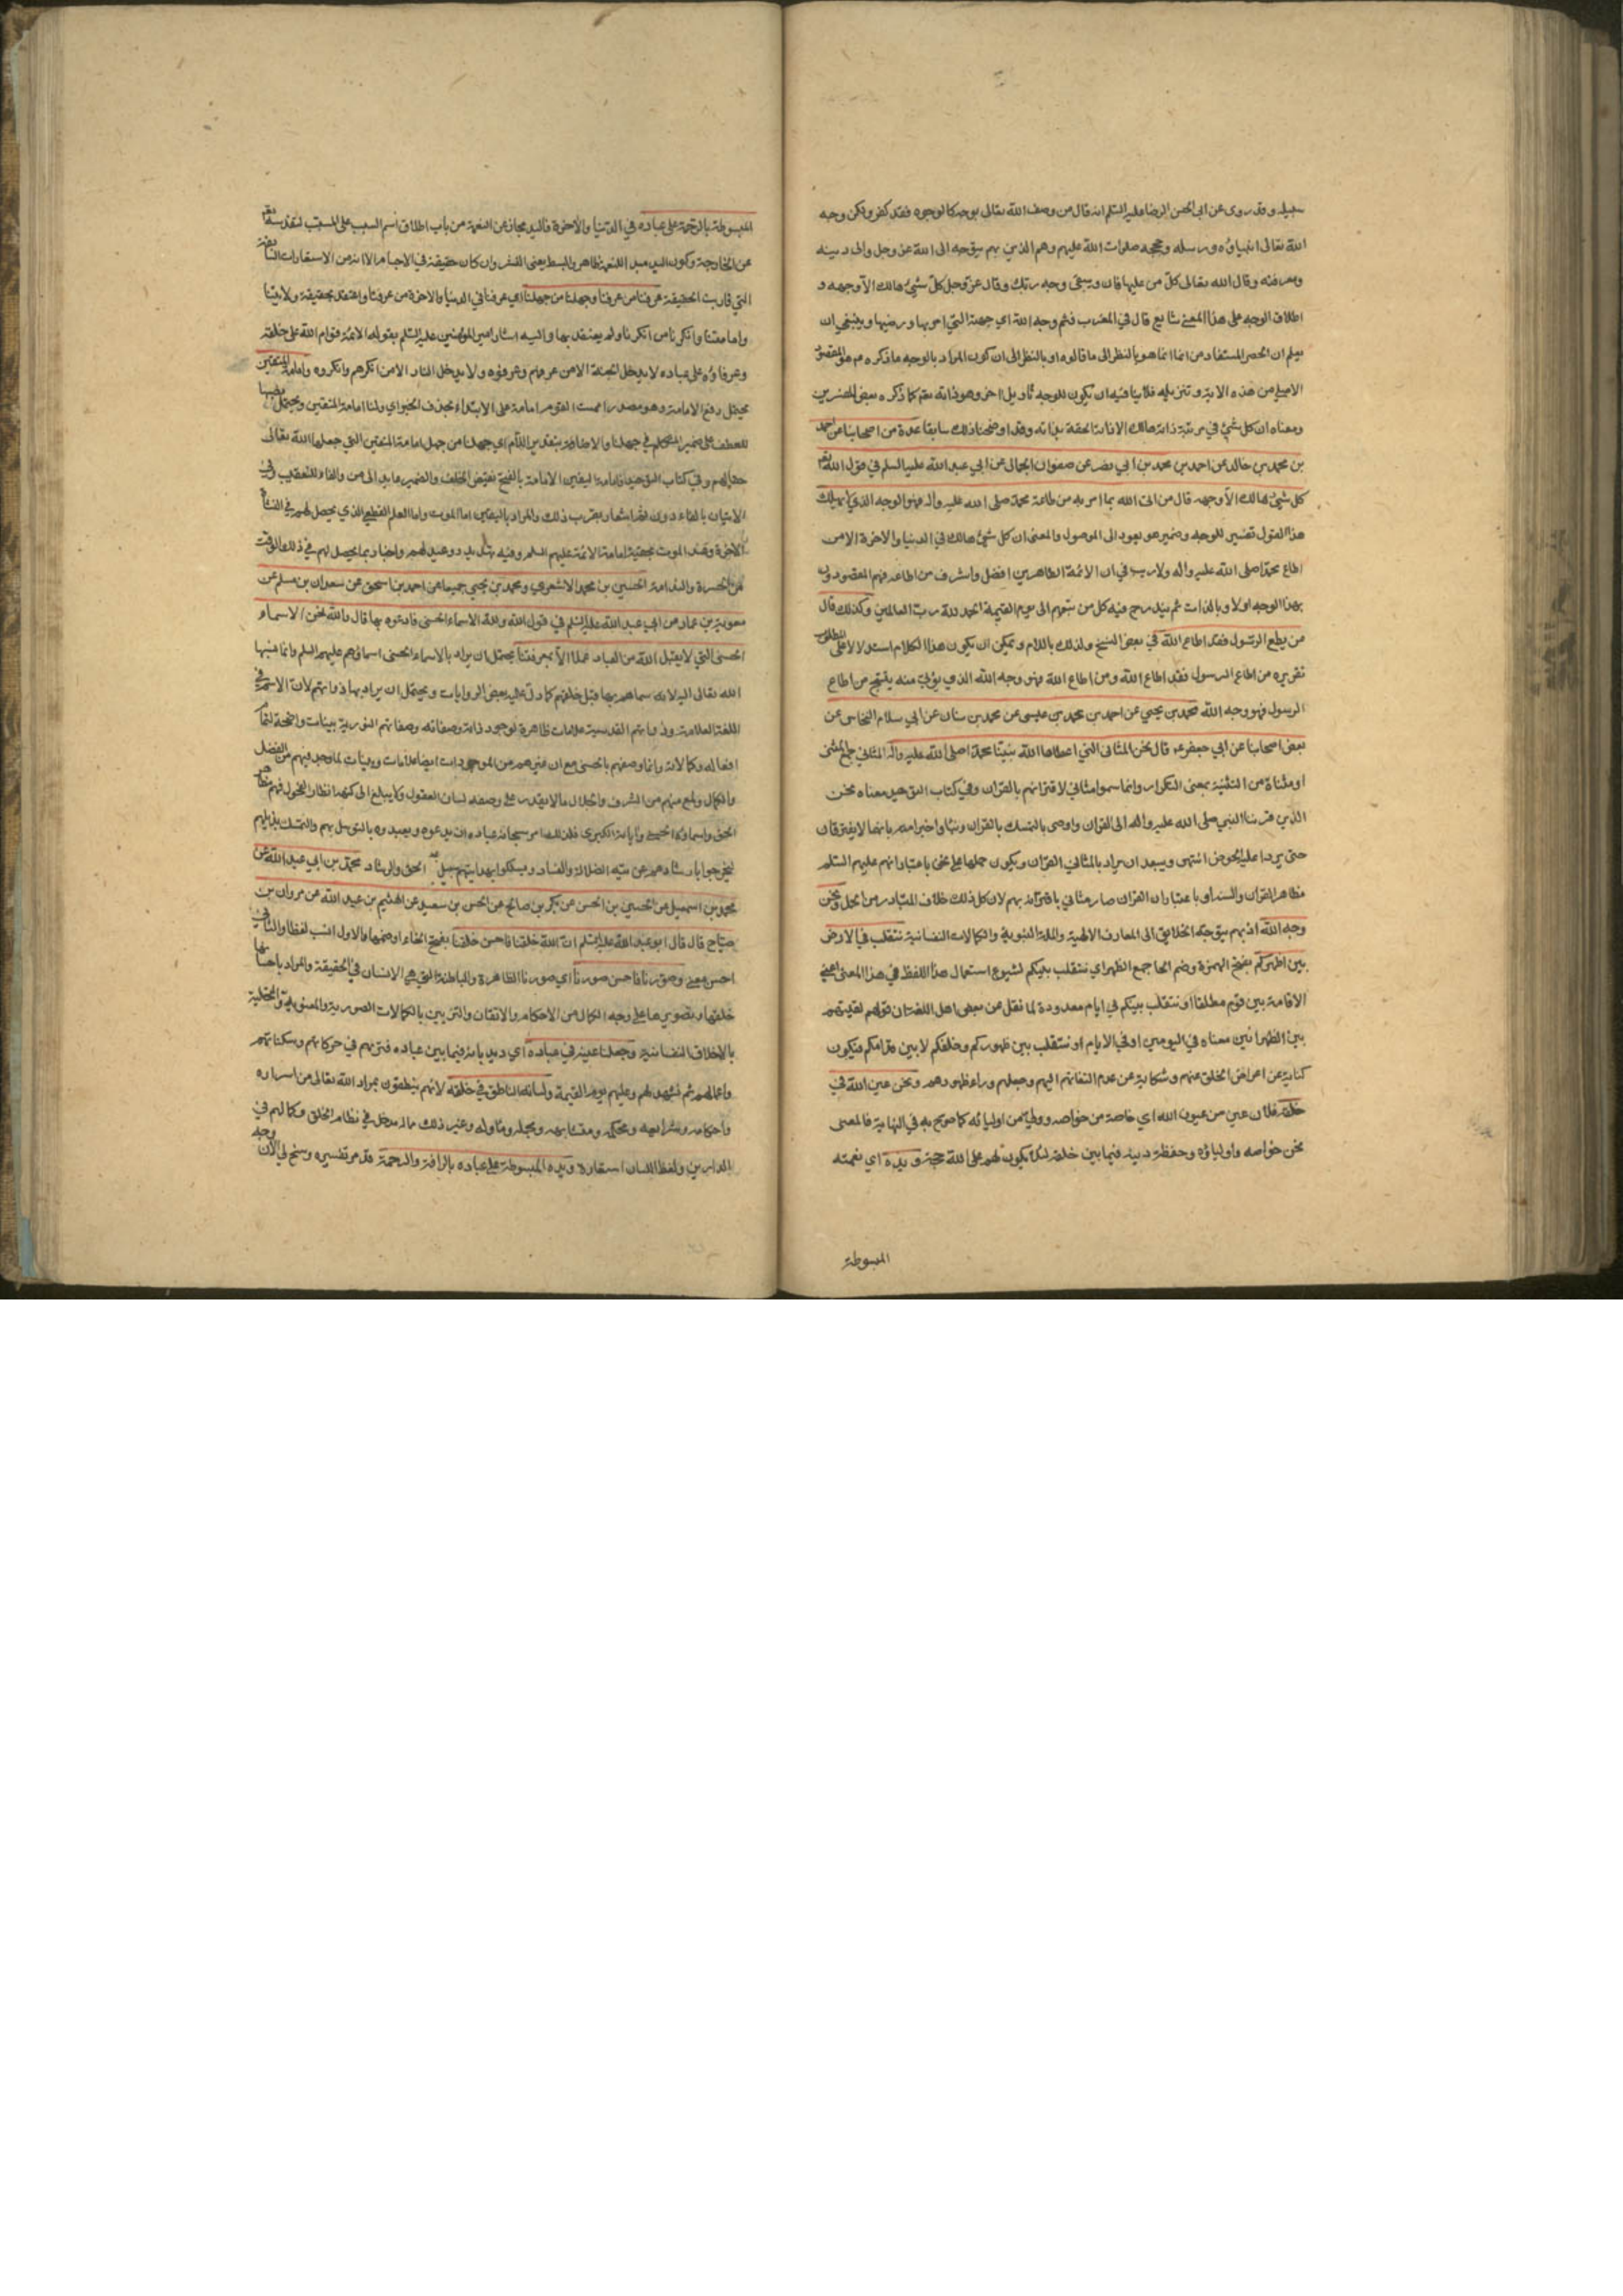 سبيله وقد روى عن ابي الحسن الرضا عليه السلم انه قال من وصف الله تعالى بوجه كالوجوه فقد كفر ولكن وجه
الله تعالى انبياؤه ورسله وحججه صلوات الله عليهم وهم الذين بهم يتوجه الى الله عز وجل والى دينه
ومعرفته وقال الله تعالى كل من عليها فان ويبقى وجه ربك وقال عز وجل كل شئ هالك الا وجهه و
اطلاق الوجه على هذا المعنى شايع قال في المغرب فثم وجه الله اي جهته التي امر بها ورضيها وينبغي ان
يعلم ان الحصر المستفاد من انما انما هو بالنظر الى ما قالوه او بالنظر الى ان كون المراد بالوجه ما ذكره هو المقصود
الاصلي من هذه الاية وتنزيله فلا ينافيه ان يكون للوجه تاويل اخر وهو ذاته تعم كما ذكره بعض المفسرين
ومعناه ان كل شئ في مرتبة ذاته هالك الا ذاته الحقة بذاته وقد اوضحنا ذلك سابقا عدة من اصحابنا عن احمد
بن محمد بن خالد عن احمد بن محمد بن ابي نصر عن صفوان الجمال عن ابي عبد الله عليه السلم في قول الله تعم
كل شئ هالك الا وجهه قال من اتى الله بما امر به من طاعة محمد صلى الله عليه وآله فهو الوجه الذي لا يهلك
هذا القول تفسير للوجه وضمير هو يعود الى الموصول والمعنى ان كل شئ هالك في الدنيا والاخرة الا من
اطاع محمدا صلى الله عليه واله ولا ريب في ان الائمة الطاهرين افضل واشرف من اطاعه فهم المقصودون
بهذا الوجه اولا وبالذات ثم يندرج فيه كل من تبعهم الى يوم القيمة الحمد لله رب العالمين وكذلك قال
من يطع الرسول فقد اطاع الله في بعض النسخ ولذلك باللام ويمكن ان يكون هذا الكلام استدلالا على المطلوب
تقريره من اطاع الرسول فقد اطاع الله ومن اطاع الله فهو وجه الله الذي يؤتى منه ينتج من اطاع
الرسول فهو وجه الله محمد بن يحيى عن احمد بن محمد بن عيسى عن محمد بن سنان عن ابي سلام النخاس عن
بعض اصحابنا عن ابي جعفر ع قال نحن المثاني التي اعطاها الله نبينا محمدا صلى الله عليه وآله المثاني جمع المثنى
او مثناة من التثنية بمعنى التكرار وانما سموا مثاني لاقترانهم بالقرآن وفي كتاب التوحيد معناه نحن
الذين قرننا النبي صلى الله عليه وآله الى القران واوصى بالتمسك بالقران وبنا واخبر امته بانهما لا يفترقان
حتى يردا عليه الحوض انتهى ويبعد ان يراد بالمثاني القران ويكون حملها على نحن باعتبار انهم عليهم السلم
مظاهر القران والسند او باعتبار ان القران صار مثاني باقترانه بهم لان كل ذلك خلاف المتبادر من الحمل ونحن
وجه الله اذ بهم يتوجه الخلائق الى المعارف الالهية والملة النبوية والكمالات النفسانية نتقلب في الارض
بين اظهركم بفتح الهمزة وضم الهاء جمع الظهر اي نتقلب بينكم لشيوع استعمال هذا اللفظ في هذا المعنى اعني
الاقامة بين قوم مطلقا او نتقلب بينكم في ايام معدودة لما نقل عن بعض اهل اللغة ان قولهم لقيتهم
بين الظهرانين معناه في اليومين او في الايام او نتقلب بين ظهوركم وخلفكم لا بين قدامكم فيكون
كناية عن اعراض الخلق عنهم وشكاية عن عدم التفاتهم اليهم وجعلهم وراء ظهورهم ونحن عين الله في
خلقه فلان عين من عيون الله اي خاصة من خواصه وولي من اوليائه كما صرح به في النهاية فالمعنى
نحن خواصه واولياؤه وحفظة دينه فيما بين خلقه لئلا يكون لهم على الله حجة ويده اي نعمته
المبسوطة
المبسوطة بالرحمة على عباده في الدنيا والاخرة فاليد مجاز عن النعمة من باب اطلاق اسم السبب على المسبب لتقدسه تعم
عن الجارحة وكون اليد مبدأ للنعمة ظاهر والبسط يعني النشر وان كان حقيقة في الاجسام الا انه من الاستعارات الشايعة
التي قاربت الحقيقة عرفنا من عرفنا وجهلنا من جهلنا اي عرفنا في الدنيا والاخرة من عرفنا واعتقد بحقيقة ولايتنا
وامامتنا وانكرنا من انكرنا ولم يعتقد بها واليه اشار امير المؤمنين عليه السلم بقوله الائمة قوام الله على خلقه
وعرفاؤه على عباده لا يدخل الجنة الا من عرفهم وعرفوه ولا يدخل النار الا من انكرهم وانكروه وامامة المتقين
يحتمل رفع الامامة وهو مصدر اممت القوم امامة على الابتداء بحذف الخبر اي ولنا امامة المتقين ويحتمل نصبها
للعطف على ضمير المتكلم في جهلنا والاضافة بتقدير اللام اي جهلنا من جهل امامة المتقين التي جعلها الله تعالى
حقا لهم وفي كتاب التوحيد فامامه اليقين الامامة بالفتح نقيض الخلف والضمير عايد الى من والفاء للتعقيب وفي
الاتيان بالفاء دون ثم اشعار بقرب ذلك والمراد باليقين اما الموت واما العلم القطعي الذي يحصل لهم في النشأة
الاخرة وعند الموت بحقية امامة الائمة عليهم السلم وفيه تهديد ووعيد لهم واخبار بما يحصل لهم في ذلك الوقت
من الحسرة والندامة الحسين بن محمد الاشعري ومحمد بن يحيى جميعا عن احمد بن اسحق عن سعدان بن مسلم عن
معوية بن عمار عن ابي عبد الله عليه السلم في قول الله ولله الاسماء الحسنى فادعوه بها قال والله نحن الاسماء
الحسنى التي لا يقبل الله من العباد عملا الا بمعرفتنا يحتمل ان يراد بالاسماء الحسنى اسماؤهم عليهم السلم وانما نسبها
الله تعالى اليه لانه سماهم بها قبل خلقهم كما دل عليه بعض الروايات ويحتمل ان يراد بها ذواتهم لان الاسم في
اللغة العلامة وذواتهم القدسية علامات ظاهرة لوجود ذاته وصفاته وصفاتهم النورية بينات واضحة لتمام
افعاله وكمالاته وانما وصفهم بالحسنى مع ان غيرهم من الموجودات ايضا علامات وبينات لما وجد فيهم من الفضل
والكمال ولمع منهم من الشرف والجلال ما لا يقدر على وصفه لسان العقول ولا يبلغ الى كنهه انظار الفحول فهم مظاهر
الحق واسماؤه الحسنى واياته الكبرى فلذلك امر سبحانه عباده ان يدعوه ويعبدوه بالتوسل بهم والتمسك بذيلهم
ليخرجوا بارشادهم عن تيه الضلالة والفساد ويسلكوا بهدايتهم سبيل الحق والرشاد محمد بن ابي عبد الله عن
محمد بن اسمعيل عن الحسين بن الحسن عن بكر بن صالح عن الحسن بن سعيد عن الهيثم بن عبد الله عن مروان بن
صباح قال قال ابو عبد الله عليه السلم ان الله خلقنا فاحسن خلقنا بفتح الخاء او ضمها والاول انسب لفظا والثاني
احسن معنى وصورنا فاحسن صورنا اي صورنا الظاهرة والباطنة التي هي الانسان في الحقيقة والمراد باحسانها
خلقها وتصويرها على وجه الكمال من الاحكام والاتقان والتزيين بالكمالات الصورية والمعنوية والتحلية
بالاخلاق النفسانية وجعلنا عينه في عباده اي ديدبانه فيما بين عباده فنراهم في حركاتهم وسكناتهم
واعمالهم ثم نشهد لهم وعليهم يوم القيمة ولسانه الناطق في خلقه لانهم ينطقون بمراد الله تعالى من اسراره
واحكامه وشرائعه ومحكمه ومتشابهه ومجمله ومأوله وغير ذلك مما له مدخل في نظام الخلق وكمالهم في
الدارين ولفظ اللسان استعارة ويده المبسوطة على عباده بالرافة والرحمة قد مر تفسيره وسنح لي الان وجه